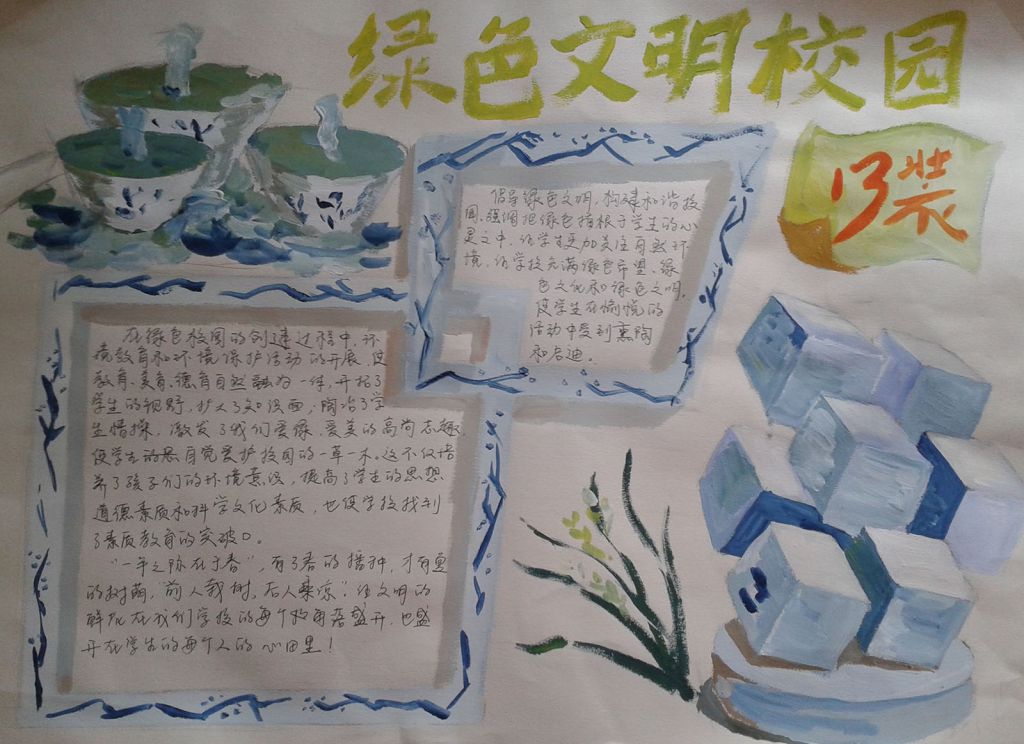 绿色文明校园
13装
倡导绿色文明，构建和谐校
园、强调把绿色植根于学生的心
灵之中，让学生更加关注自然环
境，让学校充满绿色希望、绿
色文化和绿色文明，
使学生在愉悦的
活动中受到熏陶
和启迪。
在绿色校园的创建过程中，环
境教育和环境保护活动的开展，使
教育、美育、德育自然融为一体，开拓了
学生的视野，扩大了知识面，陶冶了学
生情操，激发了我们爱绿、爱美的高尚志趣，
使学生的自觉爱护校园的一草一木。这不仅培
养了孩子们的环境意识，提高了学生的思想
道德素质和科学文化素质，也使学校找到
了素质教育的突破口。
“一年之际在于春”，有了春的播种，才有夏
的树荫，“前人栽树，后人乘凉”。让文明的
鲜花在我们学校的每个角落盛开，也盛
开在学生的每个人的心田里！